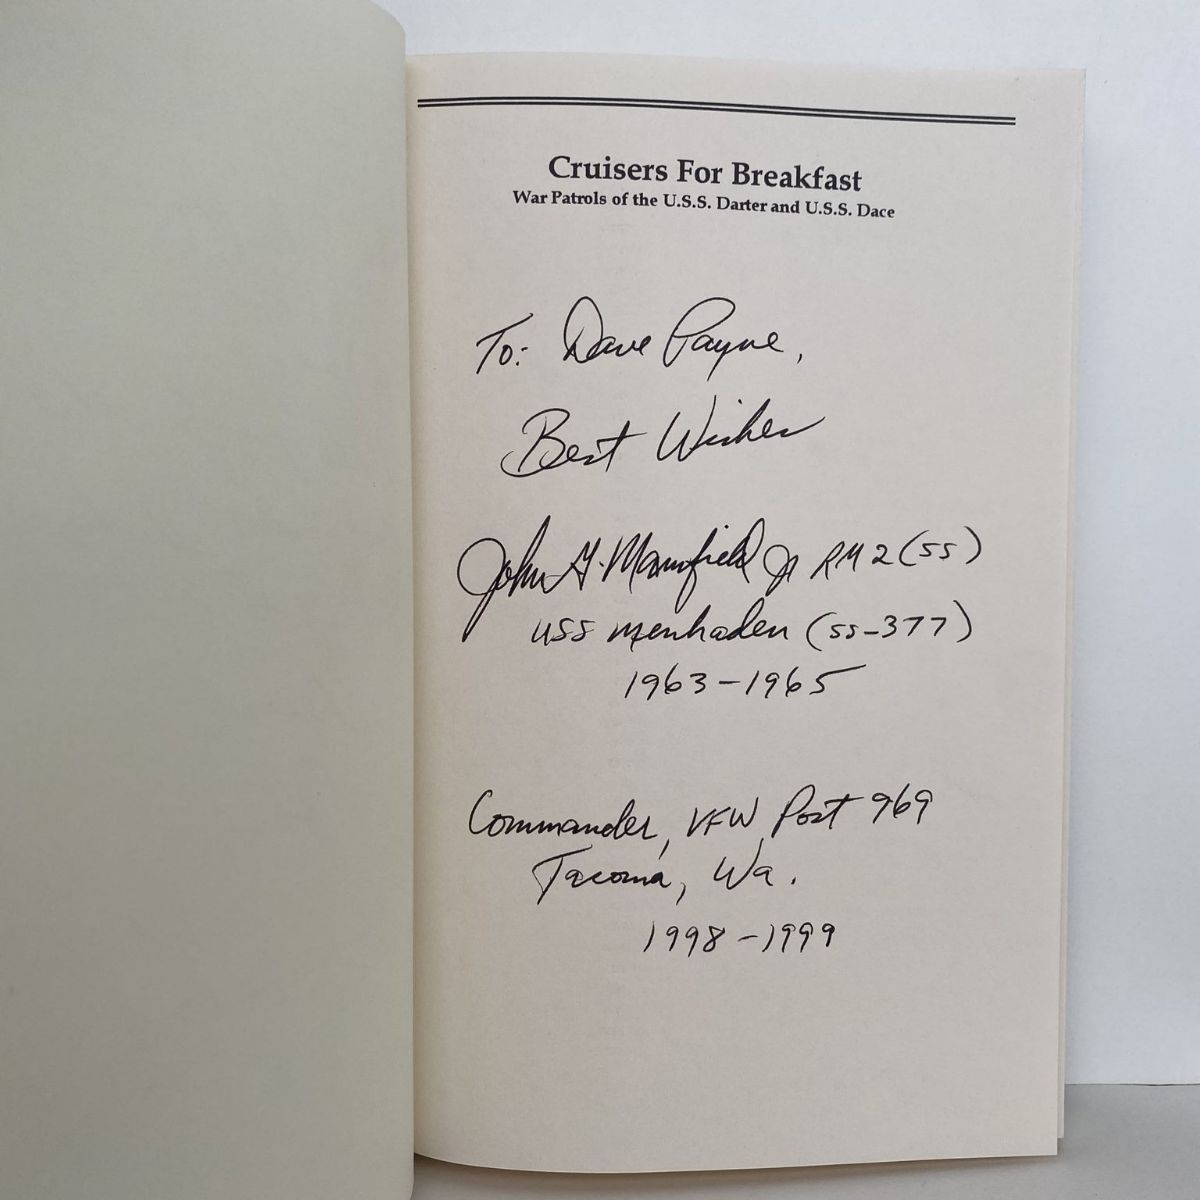 Cruisers For Breakfast
War Patrols of the U.S.S. Darter and U.S.S. Dace
To: Dave Payne,
Best Wishes
John G. Mansfield Jr RM2(SS)
USS Menhaden (SS-377)
1963-1965
Commander, VFW Post 969
Tacoma, Wa.
1998-1999